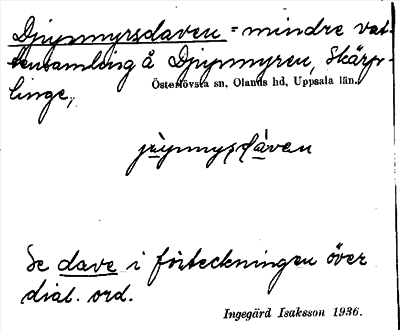 Djupmyrsdaven = mindre vat-
tensamling å Djupmyren, Skärp-
linge,
Österlövsta sn, Olands hd, Uppsala län.
Se dave i förteckningen över
dial. ord.
Ingegärd Isaksson 1936.